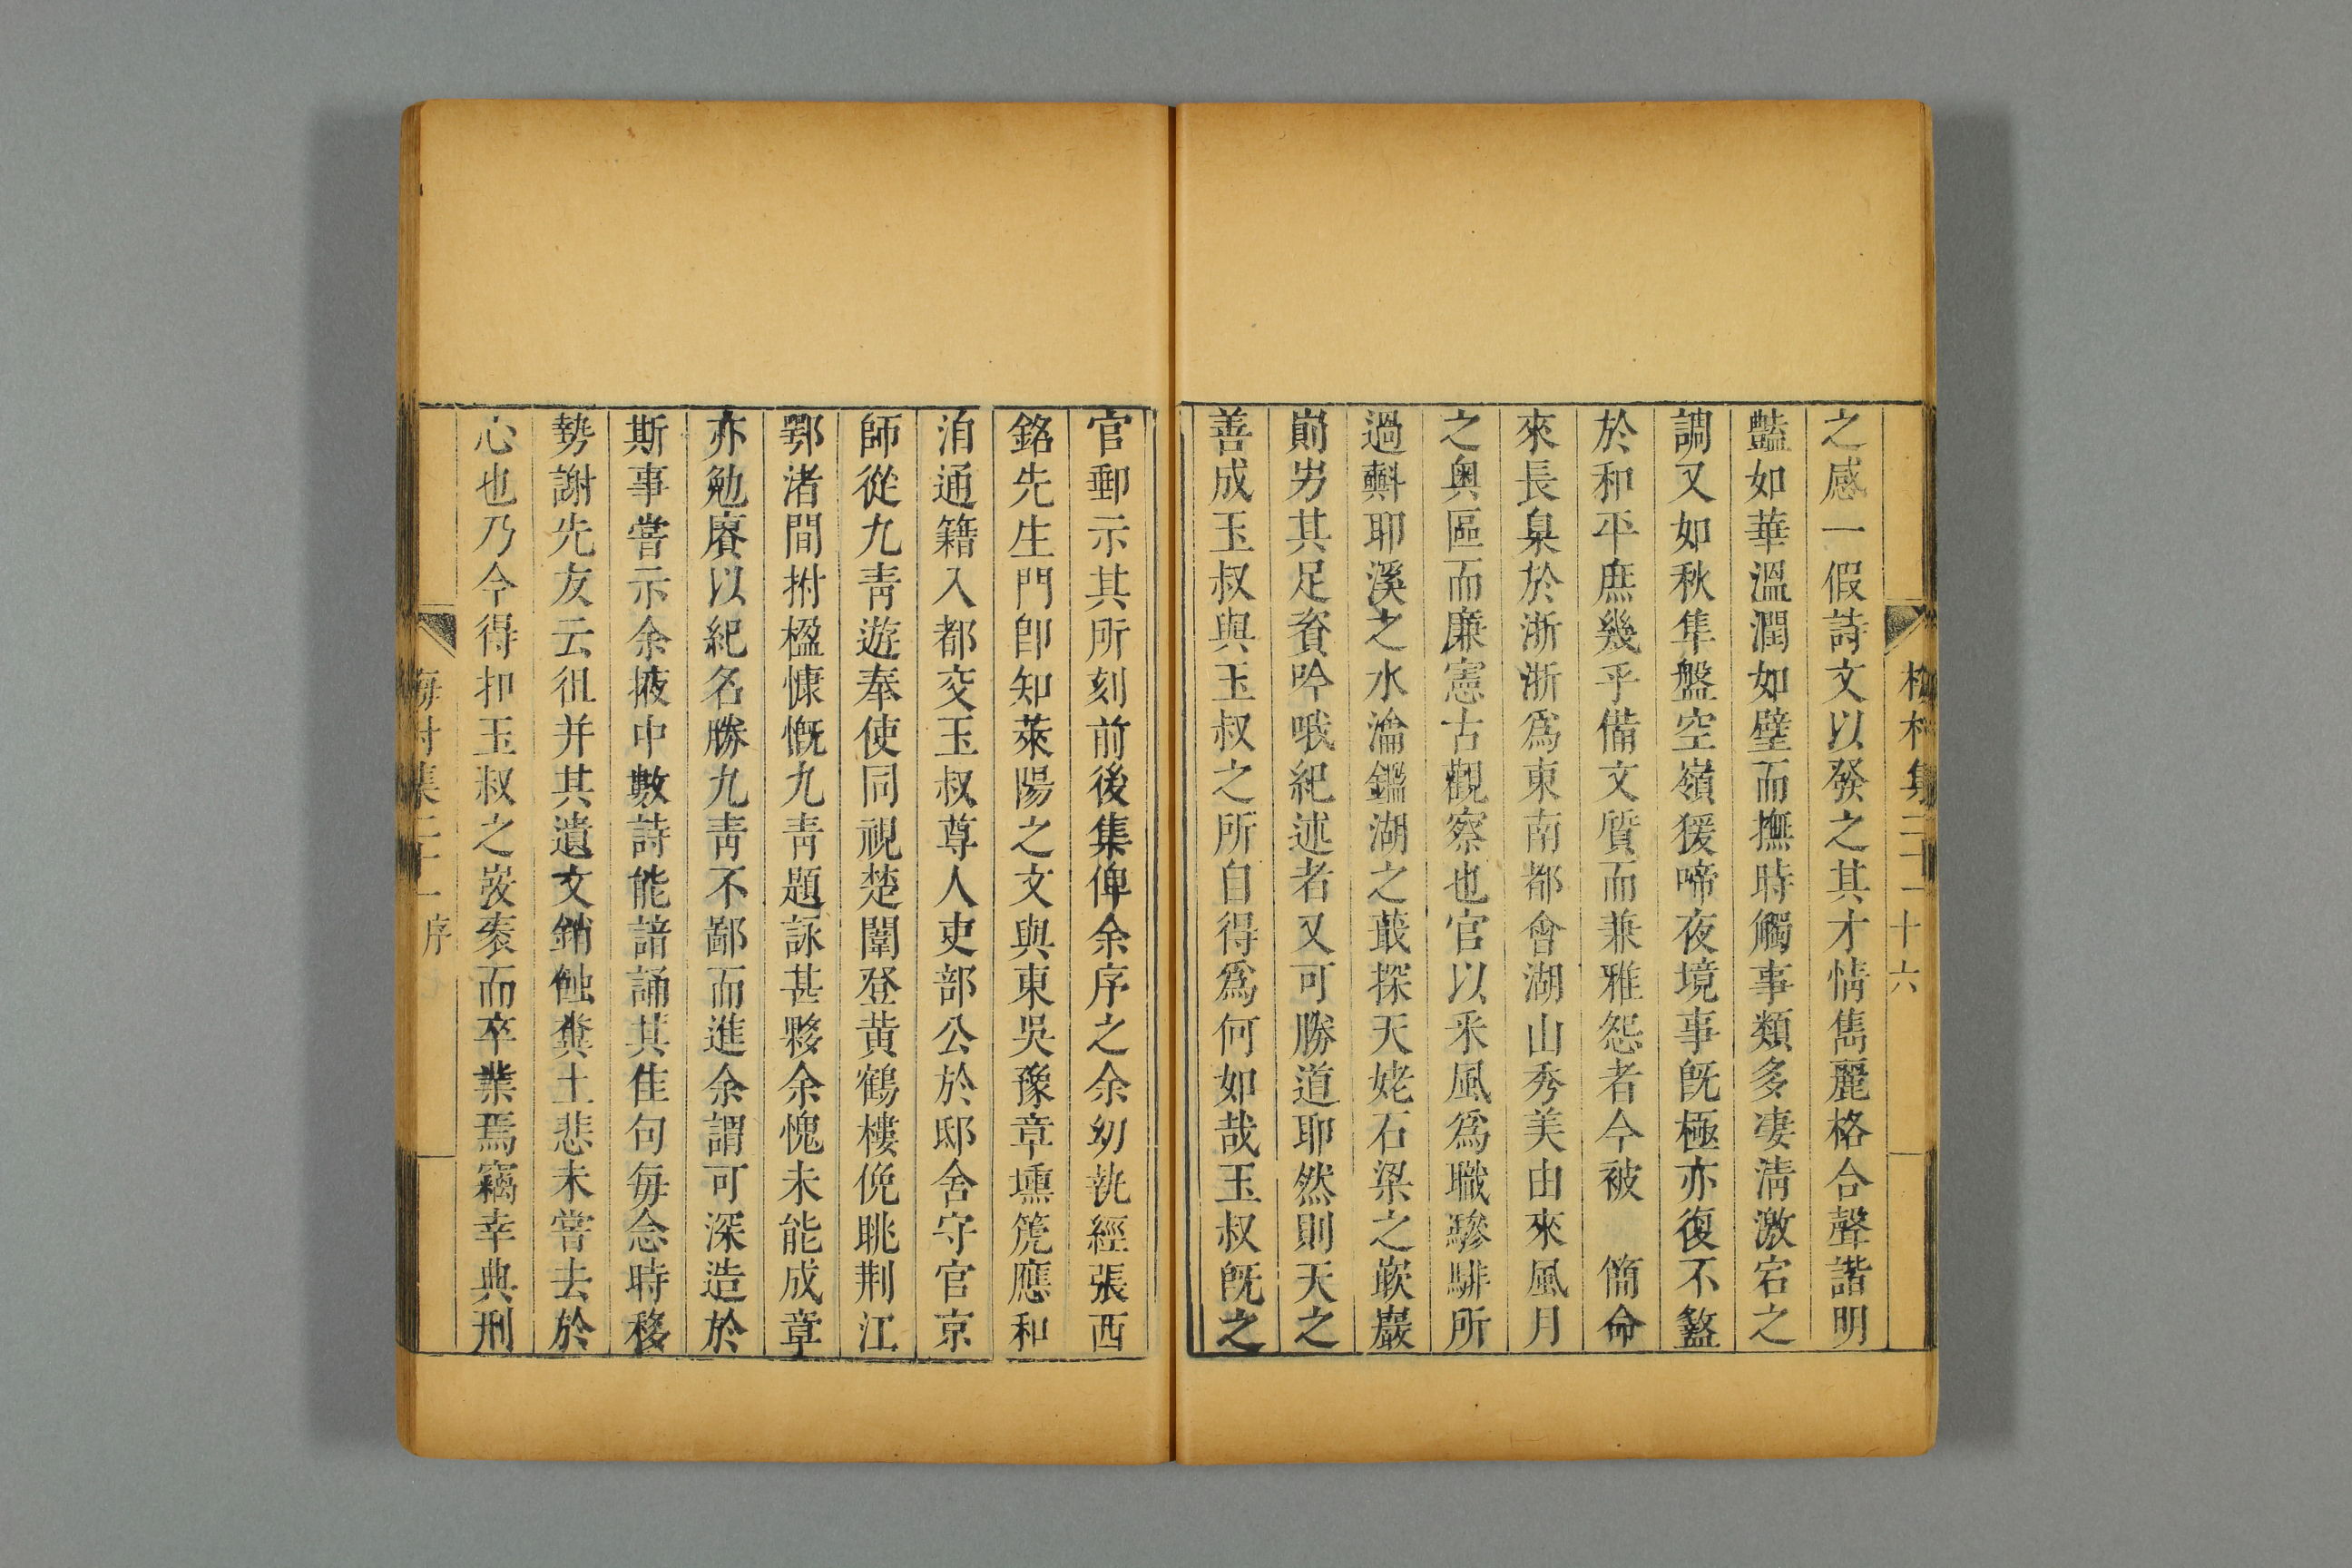 之感一假詩文以發之其才情雋麗格合聲諧明
豔如華溫潤如璧而撫時觸事類多凄淸激宕之
調又如秋隼盤空嶺猨啼夜境事旣極亦復不盭
於和平庶幾乎備文質而兼雅怨者今被　簡命
來長臬於浙浙爲東南都會湖山秀美由來風月
之奥區而廉憲古觀察也官以釆風爲職驂騑所
過𣂏耶溪之水瀹鑑湖之蕺探天姥石梁之嵚巖
崱屴其足資吟哦紀述者又可勝道耶然則天之
善成玉叔與玉叔之所自得爲何如哉玉叔旣之
官郵示其所刻前後集俾余序之余幼執經張西
銘先生門卽知萊陽之文與東吳豫章壎箎應和
洎通籍入都交玉叔尊人吏部公於邸舍守官京
師從九靑遊奉使同視楚闈登黃鶴樓俛眺荆江
鄂渚間拊楹慷慨九靑題詠甚夥余愧未能成章
亦勉賡以紀名勝九靑不鄙而進余謂可深造於
斯事嘗示余掖中數詩能諳誦其佳句每念時移
勢謝先友云徂并其遺文銷蝕糞土悲未嘗去於
心也乃今得抑玉叔之裒而卒業焉竊幸典刑
梅村集二十一 十六
梅村集二十一 序